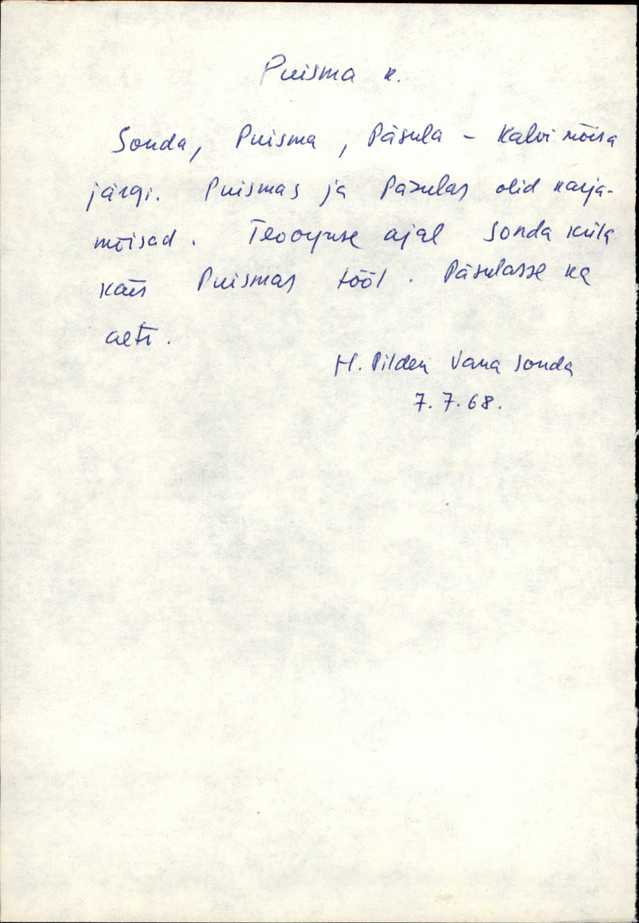 Puisma k.
Sonda, Puisma, Päsula - Kalvi mõisa
järgi. Puismas ja Päsulas olid karja-
mõisad. Teoorjuse ajal Sonda küla
käis Puismas tööl. Päsulasse ka
aeti.
H. Pilden Vana Sonda
7.7.68.